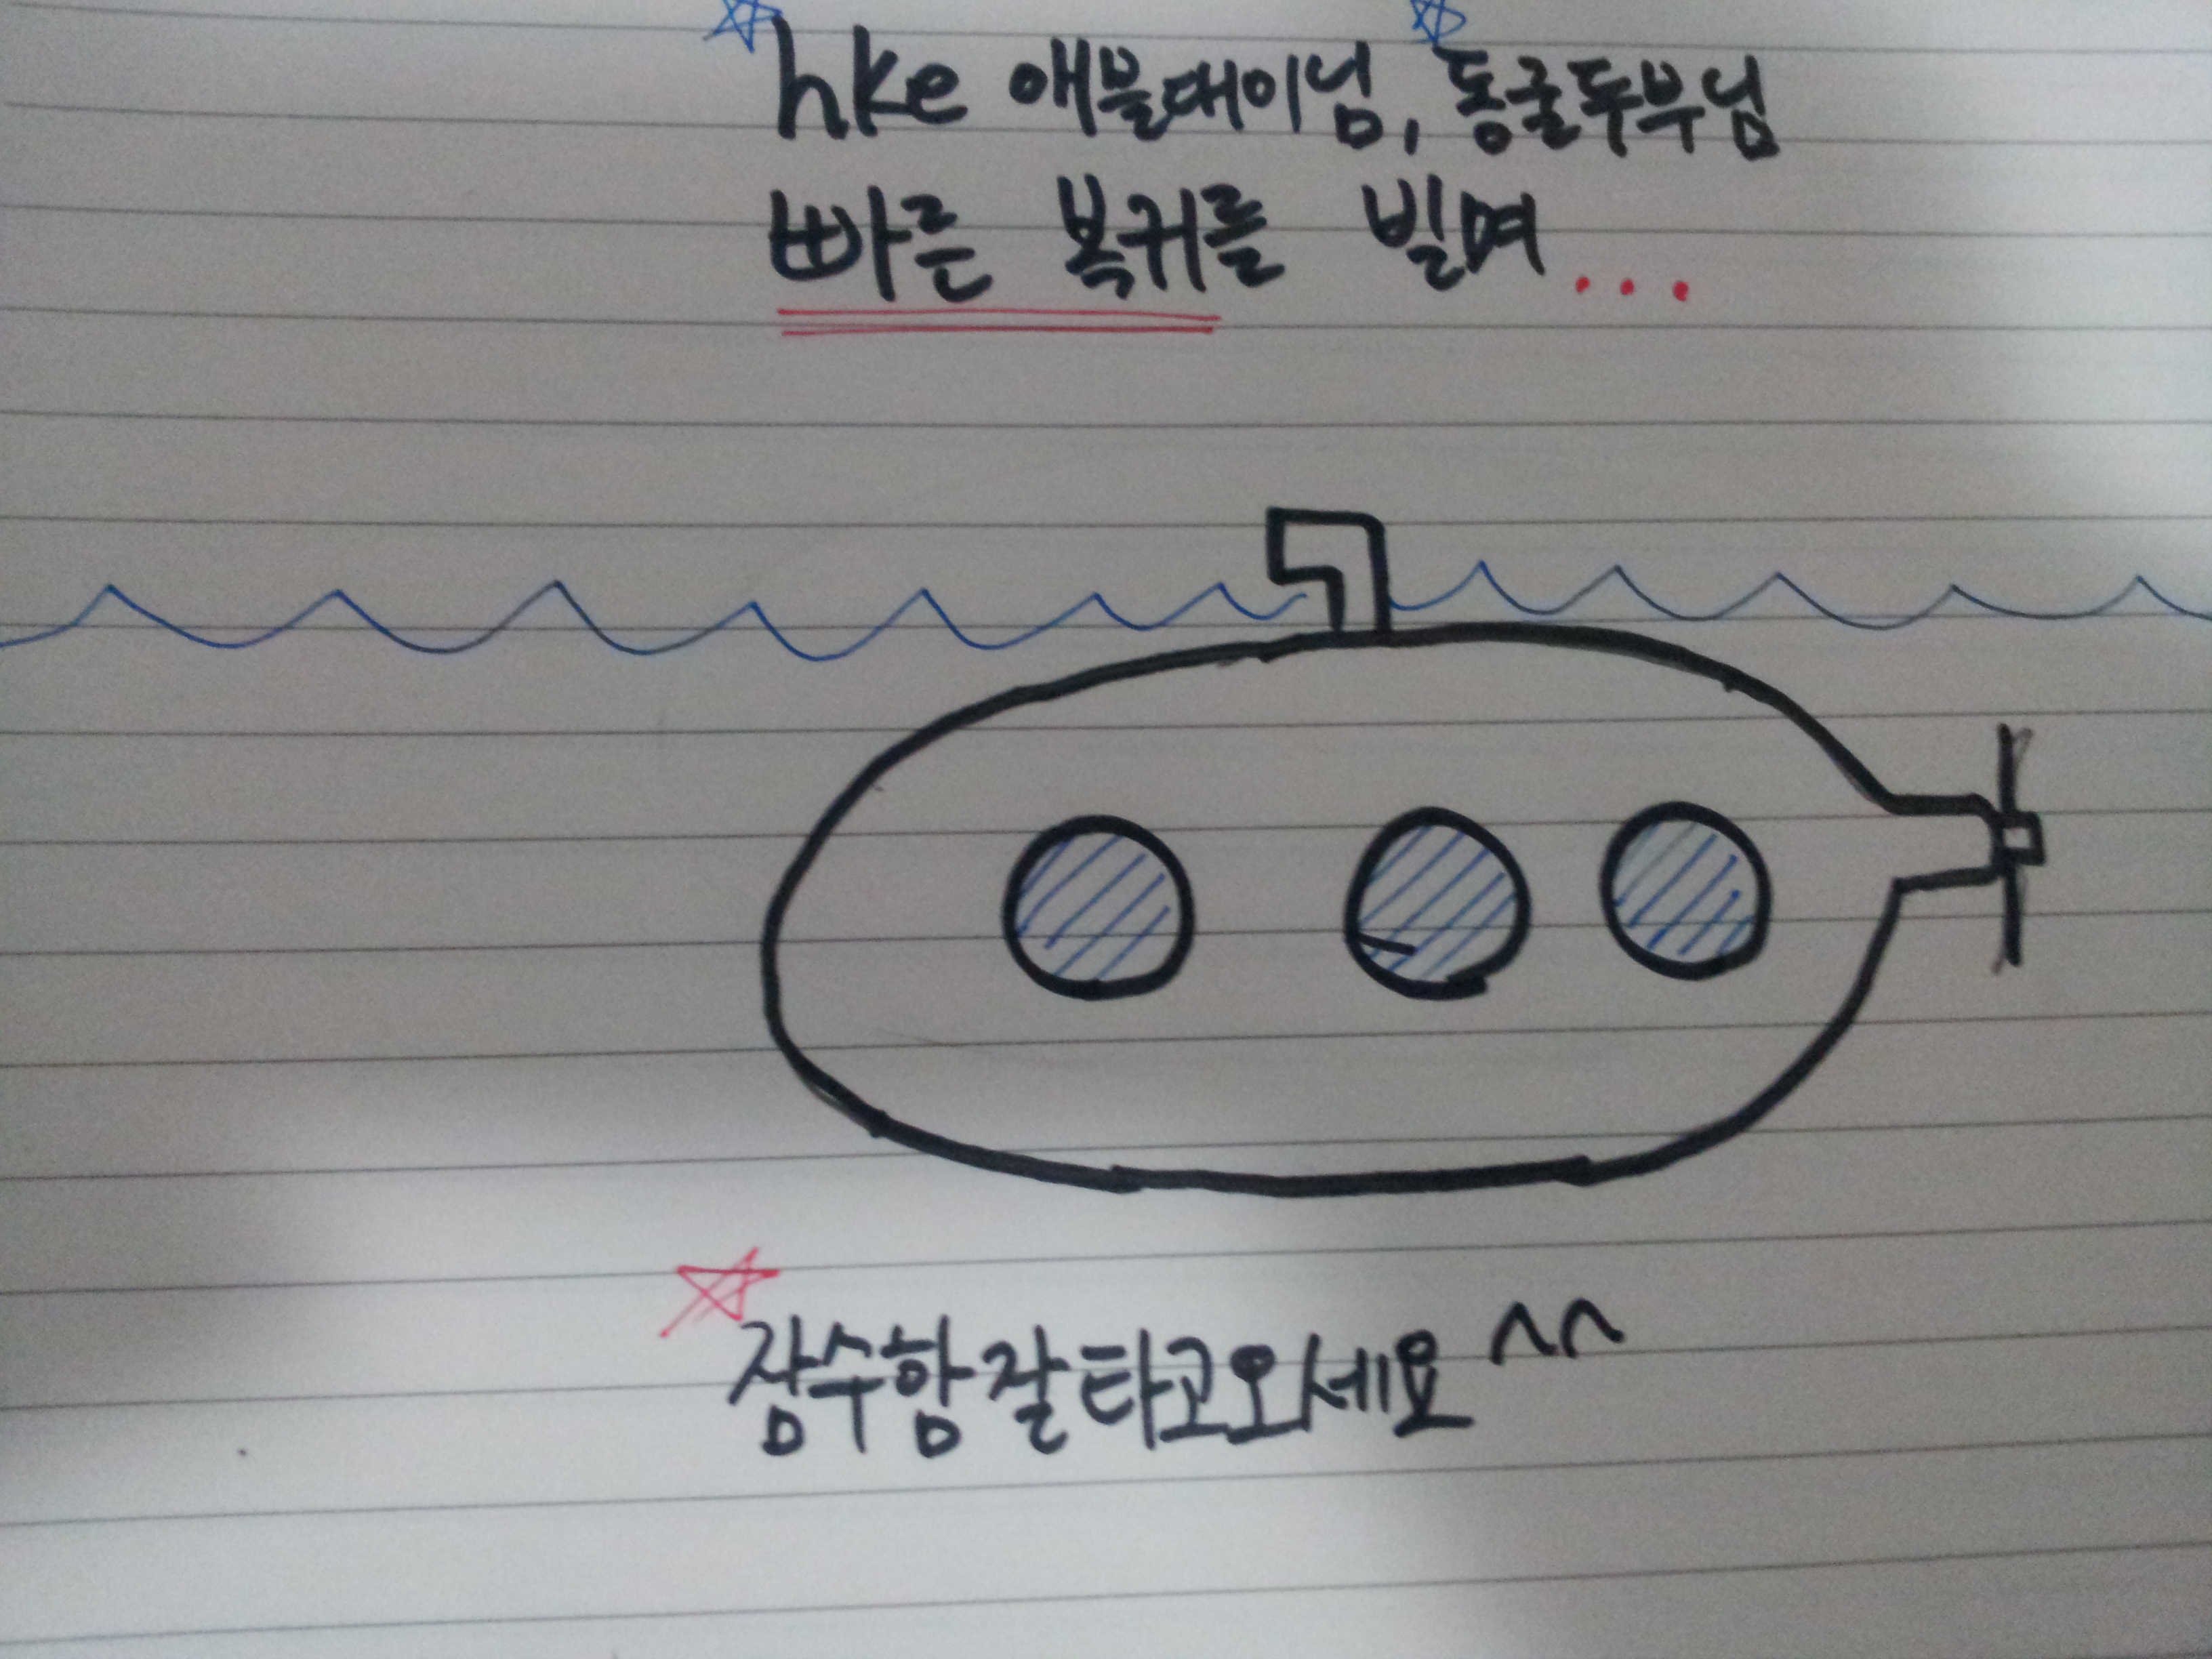 hke 애블대이님, 동굴두부님
빠른 복귀를 빌며...
잠수함 잘 타고 오세요 ^^